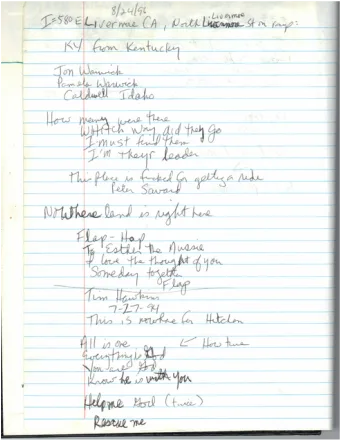 8/24/96
I-580 E Livermore CA, North Livermore st on ramp:
KY from Kentucky
Jon Warwick
Pamela Warwick
Caldwell Idaho
How many were there
Which way did they Go
I must find them
I'm their leader
This place is fucked for getting a ride
Peter
Nowhere land is right here
Flap-Hap
To Esther the Nurse
I love the thought of you
Someday together
Flap
Tim Hawkins
7-27-94
This is nowhere for Hitchin
All is one ← How true
Everything is God
You are God
Know he is with you
Help me God (twice)
Rescue me